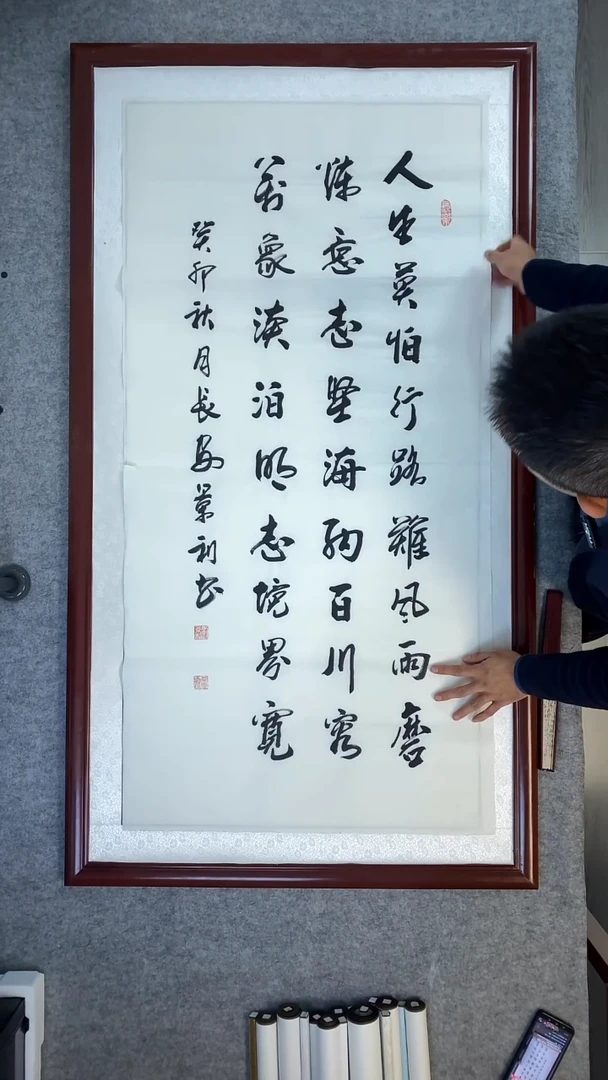 人生莫怕行路難風雨磨
煉意志堅海納百川容
萬象淡泊明志境界寬
癸卯秋月長安景利書